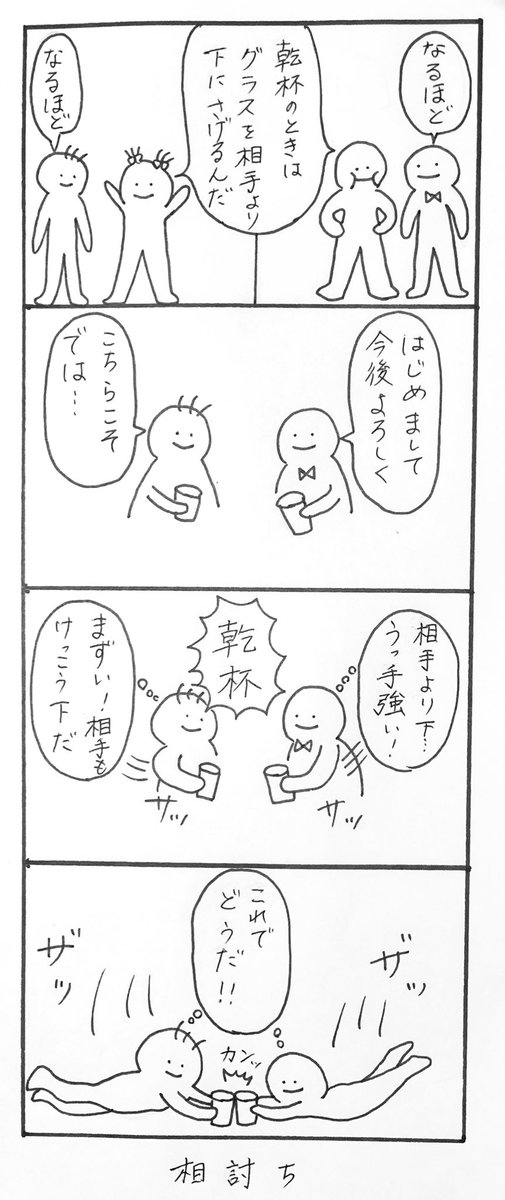 乾杯のときは
グラスを相手より
下にさげるんだ
なるほど
なるほど
はじめまして
今後よろしく
こちらこそ
では…
乾杯
相手より下…
うっ手強い!
サッ
まずい!相手も
けっこう下だ
サッ
これで
どうだ!!
ザッ
カンッ
ザッ
相討ち